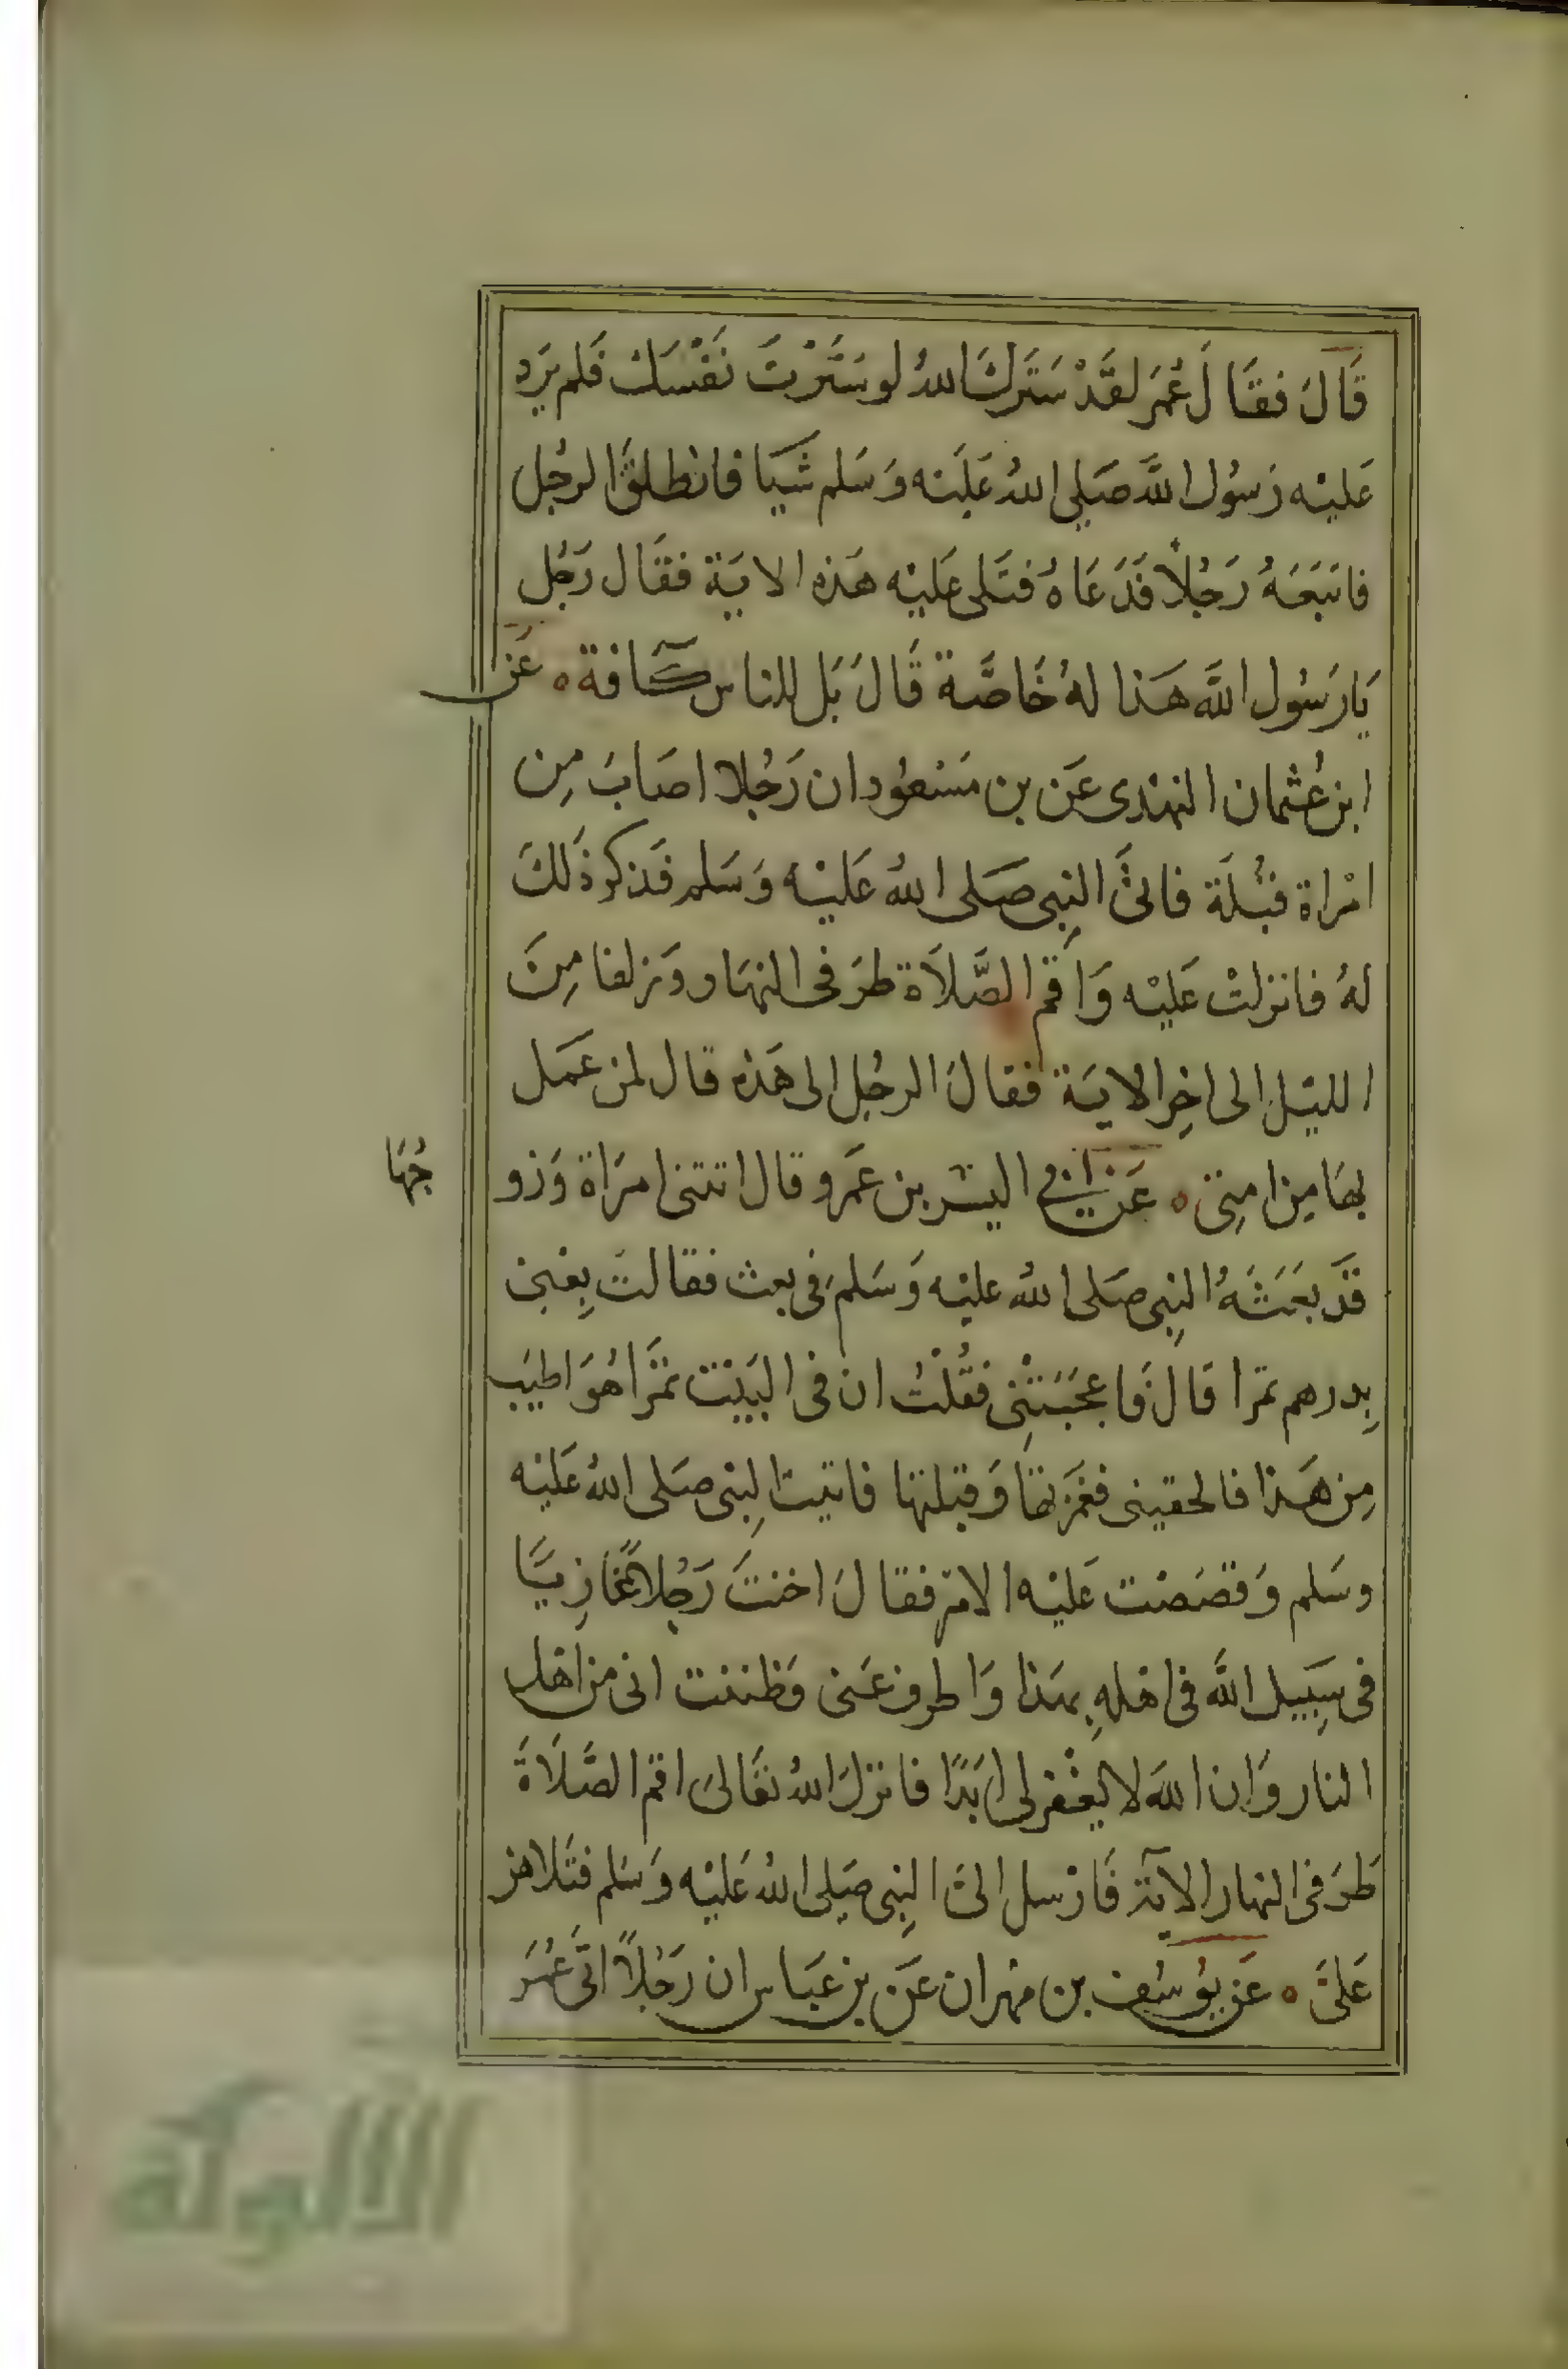 قَالَ فقَالَ عُمَر لقَدْ سَتَرَكَ اللهُ لو سَتَرْتَ نَفْسَك فَلم يَرد
عَليْه رَسُول اللَّه صَلى اللهُ عَليْه وَسَلم شَيَا فانطلقَ الرجُل
فاتبَعَهُ رَجُلاً فَدَعَاهُ فتَلى عَليْه هَذه الايَة فقَال رَجُل
يَا رَسُول اللَّه هَذا لهُ خَاصَّة قَالَ بَل للناس كَافة ه عَن
ابن عُثمان النهْدى عَن بن مَسْعُود ان رَجُلا اصَابَ مِن
امْراة قبْلَة فاتىَ النبِى صَلى اللهُ عَليْه وَسَلم فَذكر ذَلكَ
لهُ فانزلتْ عَليْه وَاقم الصَّلاَة طرَفى النهَار وَزلفا مِنَ
الليْل الى اخِر الايَة فقالَ الرجُل الى هَذه قال لمن عَمَل
بهَا مِن امتِى ه عَن ابى اليسَر بن عَمرو قال اتتنى امرَاة وَزو
جُهَا
قَد بَعَثهُ النبِى صَلى اللهُ عليْه وَسَلم فى بعث فقالتْ بِعْنِى
بِدرهم تمرا قال فَاعجَبَتْنِى فقُلْتُ ان فى البَيْت تمْرا هُوَ اطيَب
مِن هَذا فالحقينى فغمَزتها وَقبلتها فاتيت النبِى صَلى اللهُ عَليْه
وسَلم وَقصَصْت عَليْه الامْر فقالَ اخنتَ رَجُلاً غَازِيًا
فى سِبَيل اللَّه فى اهْلهِ بهَذا وَاطرف عَنى وَظننت انى من اهْل
النار وَان اللهَ لا يغْفر لى ابَدًا فانزلَ اللهُ تعَالىَ اقم الصَّلاَةَ
طرَفى النهار الآية فَارْسل الىَ النبِى صَلى اللهُ عَليْه وَسَلم فتَلاهن
عَلىَ ه عَن يوُسُف بن مهْران عَن بن عَبَاس ان رَجُلاً اتَى عُمَر
الألوكة